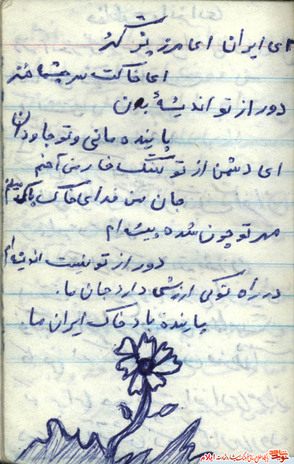 ای ایران ای مرز پر گهر
ای خاکت سرچشمه هنر
دور از تو اندیشهٔ بدان
پاینده مانی و تو جاودان
ای دشمن ار تو سنگ خاره ای من آهنم
جان من فدای خاک پاک میهنم
مهر تو چون شد پیشه ام
دور از تو نیست اندیشه ام
در راه تو کی ارزشی دارد جان ما.
پاینده باد خاک ایران ما.